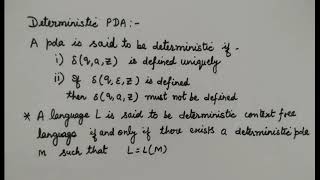 Deterministic PDA:-
A pda is said to be deterministic if -
i) δ(q,a,z) is defined uniquely
ii) If δ(q,ε,z) is defined
then δ(q,a,z) must not be defined
* A language L is said to be deterministic context free
language if and only if there exists a deterministic pda
M such that L=L(M)